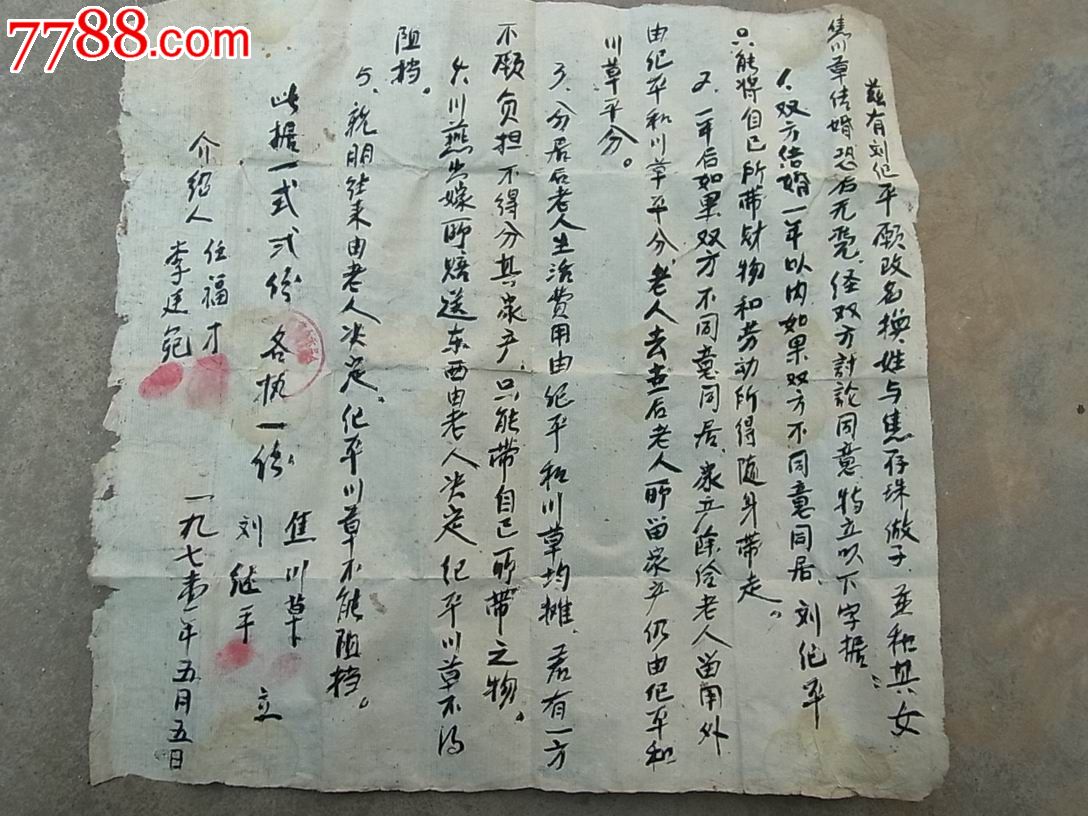 7788.com
兹有刘纪平愿改名换姓与焦存珠做子，并和其女
焦川草结婚恐后无凭，经双方討論同意特立以下字据：
1、双方结婚一年以内如果双方不同意同居、刘纪平
只能将自己所带财物和劳动所得随身带走。
2、一年后如果双方不同意同居、家产除给老人留用外
由纪平和川草平分，老人去世后老人所留家产仍由纪平和
川草平分。
3、分居后老人生活费用由纪平和川草均摊、若有一方
不愿负担不得分其家产、只能带自己所带之物。
4、川燕出嫁所赔送东西由老人决定纪平川草不得
阻挡。
5、親朋往来由老人决定、纪平川草不能阻挡。
此据一式弍份 各执一份
焦川草
刘继平 立
介绍人 任福才
李廷
一九七 年五月五日